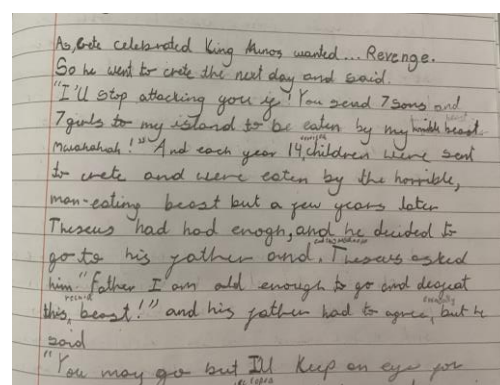 As, Crete celebrated King Minos wanted... Revenge.
So he went to crete the next day and said.
"I'll stop attacking you if! You send 7 sons and
7 girls to my island to be eaten by my horrible beast
Mwahahah!" And each year 14, children were sent
to crete and were eaten by the horrible,
man-eating beast but a few years later
Theseus had had enogh, and he decided to
go to his father and, Theseus asked
him "Father I am old enough to go and defeat
this, beast!" and his father had to agree, but he
said
"You may go but I'll Keep an eye for